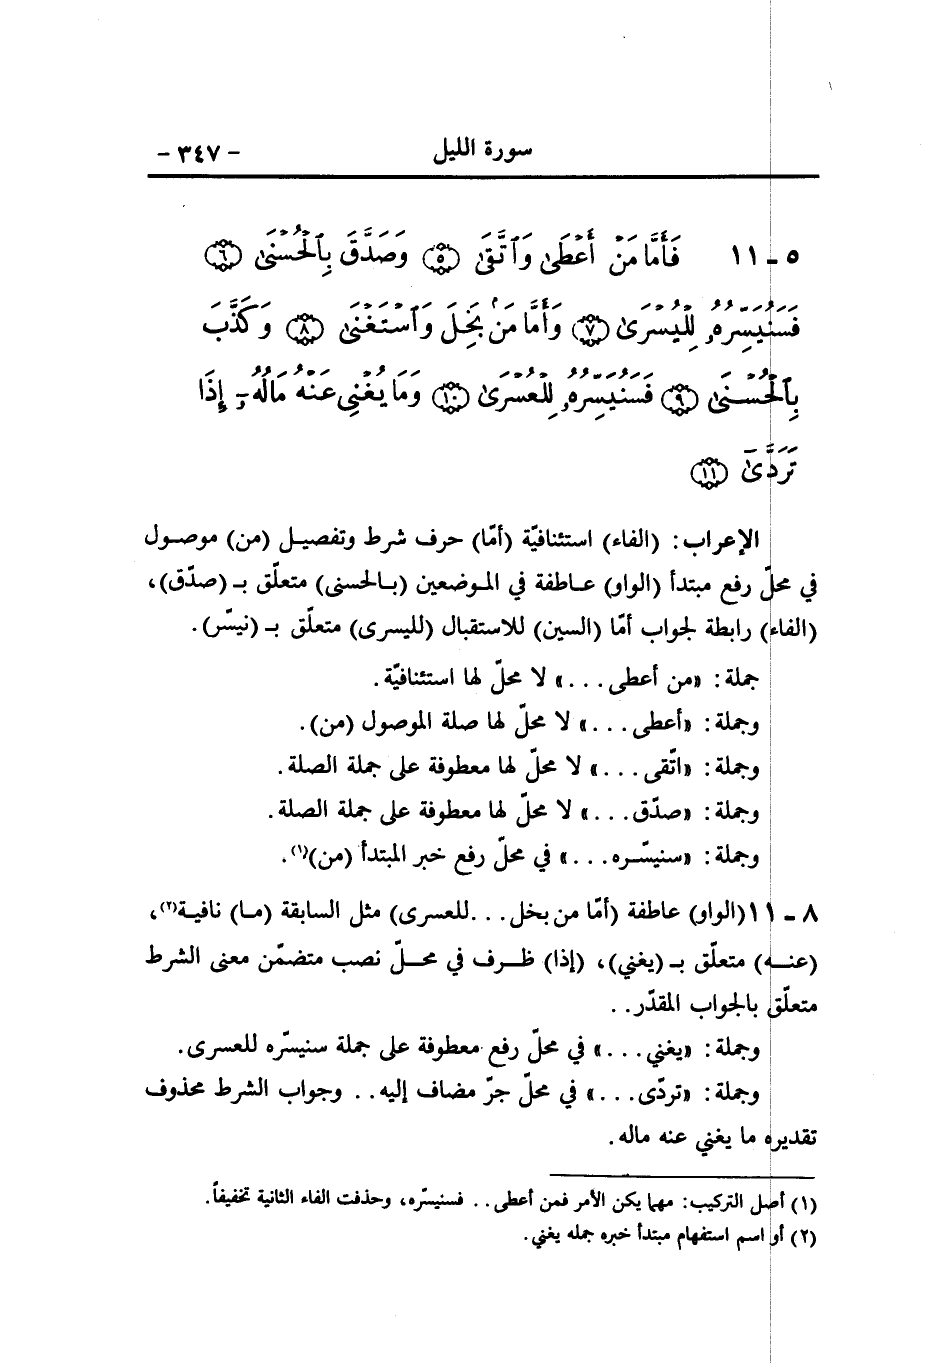 سورة الليل - ٣٤٧ -
٥ - ١١ فَأَمَّا مَنْ أَعْطَىٰ وَٱتَّقَىٰ ﴿٥﴾ وَصَدَّقَ بِٱلْحُسْنَىٰ ﴿٦﴾
فَسَنُيَسِّرُهُۥ لِلْيُسْرَىٰ ﴿٧﴾ وَأَمَّا مَنْ بَخِلَ وَٱسْتَغْنَىٰ ﴿٨﴾ وَكَذَّبَ
بِٱلْحُسْنَىٰ ﴿٩﴾ فَسَنُيَسِّرُهُۥ لِلْعُسْرَىٰ ﴿١٠﴾ وَمَا يُغْنِى عَنْهُ مَالُهُۥٓ إِذَا
تَرَدَّىٰٓ ﴿١١﴾
الإعراب: (الفاء) استئنافيّة (أمّا) حرف شرط وتفصيل (من) موصول
في محلّ رفع مبتدأ (الواو) عاطفة في الموضعين (بالحسنى) متعلّق بـ (صدّق)،
(الفاء) رابطة لجواب أمّا (السين) للاستقبال (لليسرى) متعلّق بـ (نيسّر).
جملة: «من أعطى...» لا محلّ لها استئنافيّة.
وجملة: «أعطى...» لا محلّ لها صلة الموصول (من).
وجملة: «اتّقى...» لا محلّ لها معطوفة على جملة الصلة.
وجملة: «صدّق...» لا محلّ لها معطوفة على جملة الصلة.
وجملة: «سنيسّره...» في محلّ رفع خبر المبتدأ (من)(١).
٨ - ١١ (الواو) عاطفة (أمّا من بخل... للعسرى) مثل السابقة (ما) نافية(٢)،
(عنه) متعلّق بـ (يغني)، (إذا) ظرف في محلّ نصب متضمّن معنى الشرط
متعلّق بالجواب المقدّر..
وجملة: «يغني...» في محلّ رفع معطوفة على جملة سنيسّره للعسرى.
وجملة: «تردّى...» في محلّ جرّ مضاف إليه.. وجواب الشرط محذوف
تقديره ما يغني عنه ماله.
(١) أصل التركيب: مهما يكن الأمر فمن أعطى.. فسنيسّره، وحذفت الفاء الثانية تخفيفاً.
(٢) أو اسم استفهام مبتدأ خبره جمله يغني.